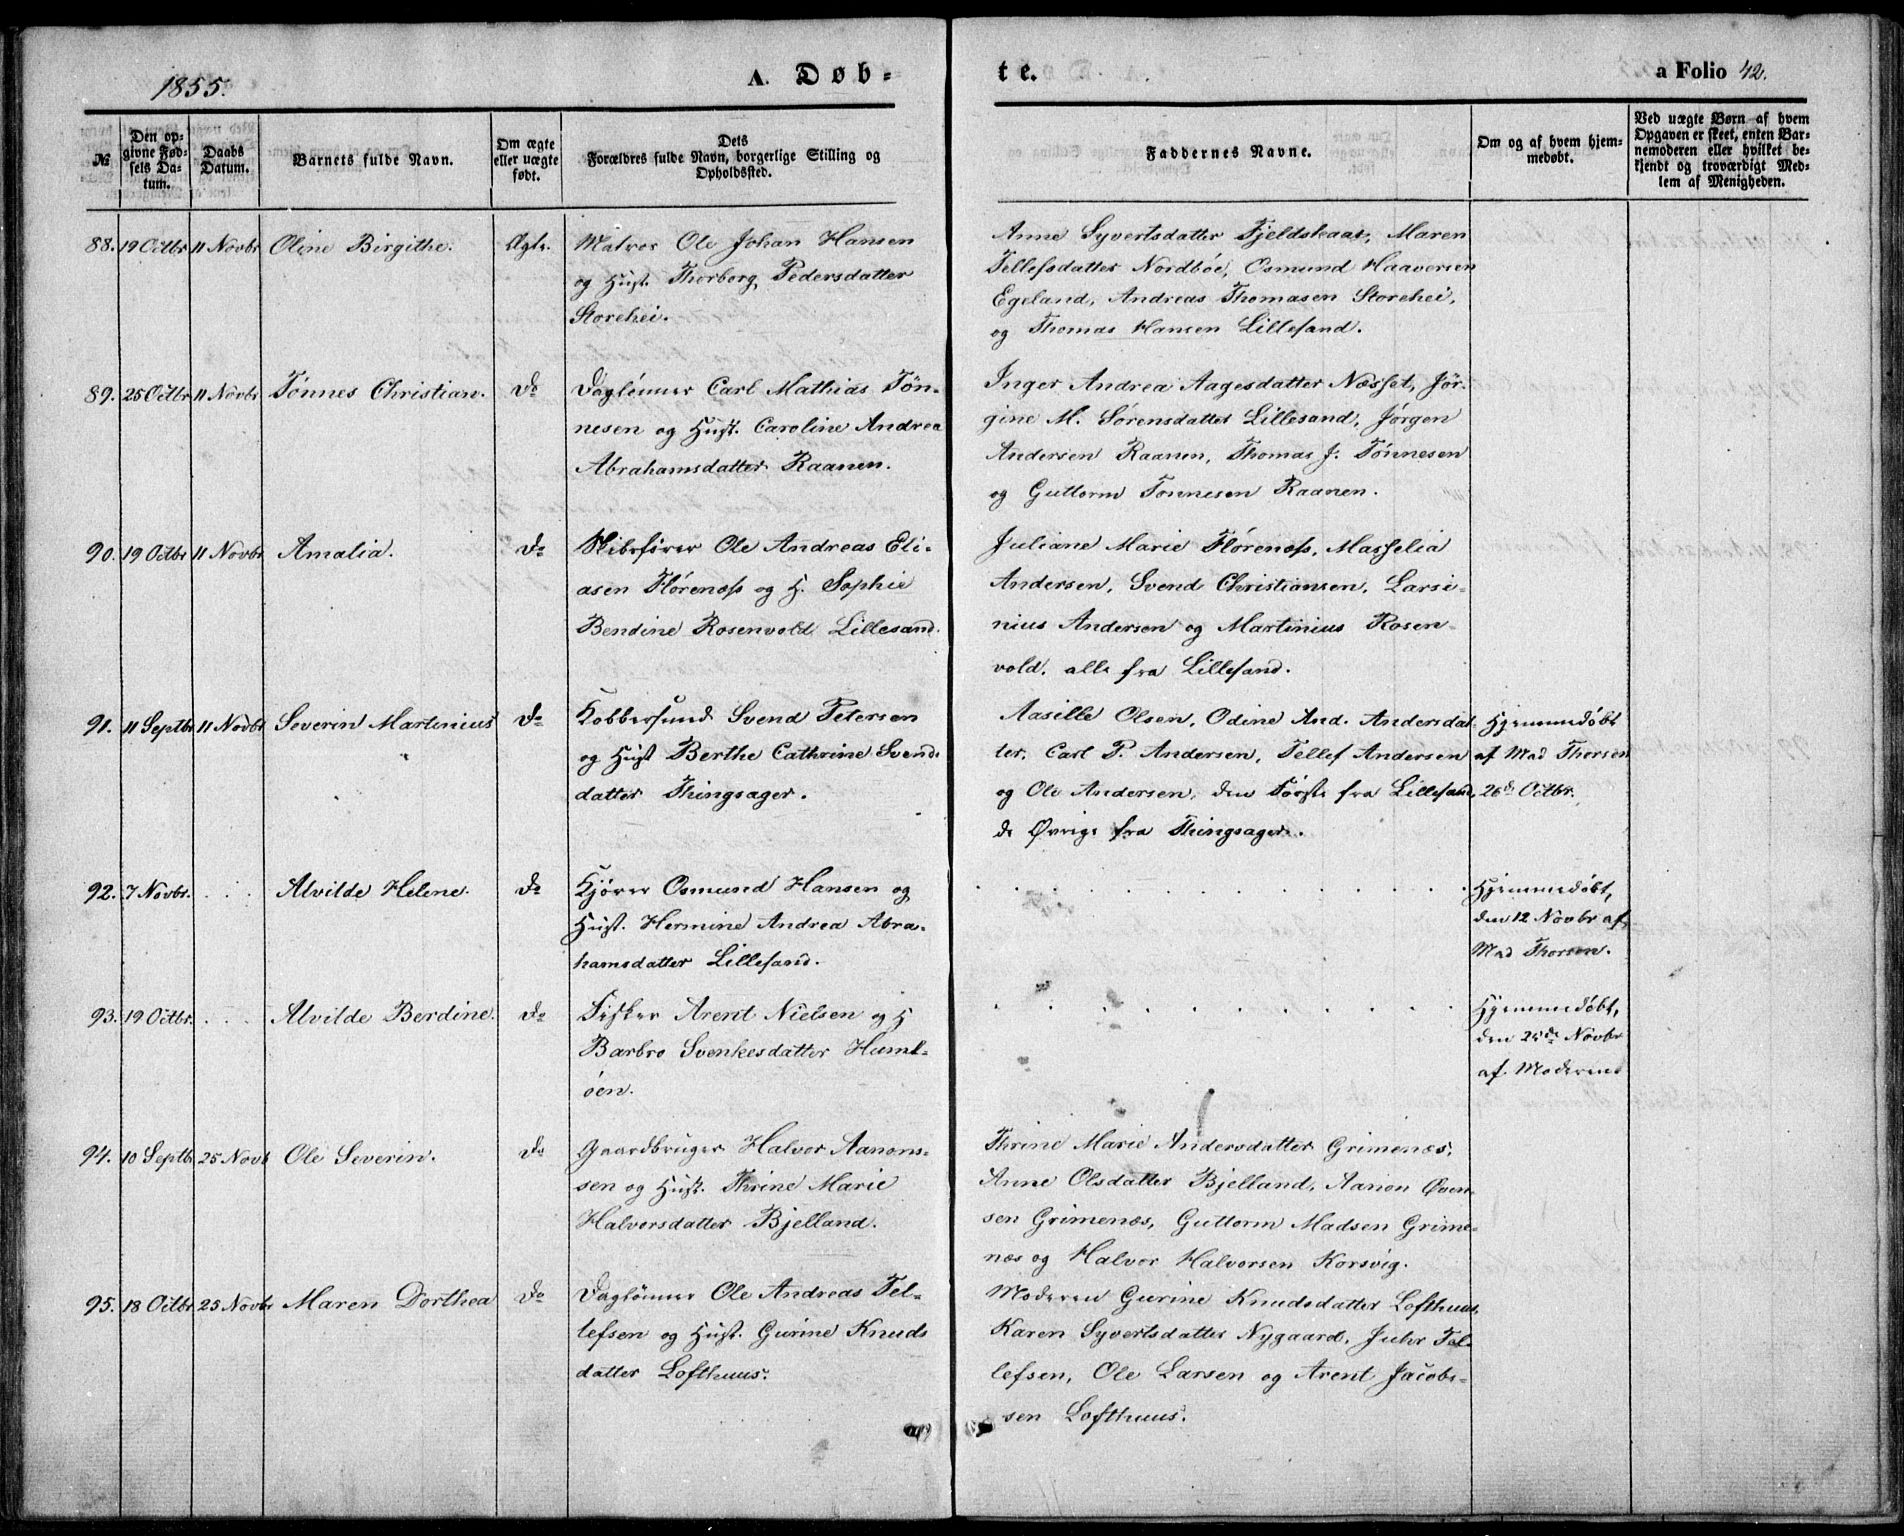 1855.
A. Døb-
te.
a Folio 42.
№
Den op-
givne Fød-
sels Da-
tum.
Daabs
Datum.
Barnets fulde Navn.
Om ægte
eller uægte
født.
Dets
Forældres fulde Navn, borgerlige Stilling og
Opholdssted.
Faddernes Navne.
Om og af hvem hjem-
medøbt.
Ved uægte Børn af hvem
Opgaven er skeet, enten Bar-
nemoderen eller hvilket be-
kjendt og troværdigt Med-
lem af Menigheden.
88. 19 Octbr 11 Novbr Oline Birgithe. Ægte.
Matros Ole Johan Hansen
og Hust. Thorborg Pedersdatter
Storehei.
Anne Syvertsdatter Fjeldskaar, Maren
Tellefsdatter Nordböe, Osmund Haaversen
Egeland, Andreas Thomasen Storehei,
og Thomas Hansen Lillesand.
89. 25 Octbr 11 Novbr Tönnes Christian. Do
Daglönner Carl Mathias Tön-
nesen og Hust. Caroline Andrea
Abrahamsdatter Raanen.
Inger Andrea Aagesdatter Næsset, Jör-
gine M. Sörensdatter Lillesand, Jörgen
Andersen Raanen, Thomas J. Tönnesen
og Guttorm Tönnesen Raanen.
90. 19 Octbr 11 Novbr Amalia. Do
Skibsförer Ole Andreas Eli-
asen Flörenæss og H. Sophie
Bendine Rosenvold Lillesand.
Juliane Marie Flörenæss, Masselia
Andersen, Svend Christiansen, Larsi-
nius Andersen og Martinius Rosen-
vold. alle fra Lillesand.
91. 11 Septbr 11 Novbr Severin Martinius Do
Kobbersmed Svend Petersen
og Hust Berthe Cathrine Svends
datter Thingsager.
Aasille Olsen, Odine And. Andersdat-
ter, Carl P. Andersen, Tellef Andersen
og Ole Andersen, den Förste fra Lillesand,
de Övrige fra Thingsager.
Hjemmedöbt
af Mad Thorsen
26de Octbr.
92. 7 Novbr. . . . Alvilde Helene. Do
Kjörer Osmund Hansen og
Hust. Hermine Andrea Abra-
hamsdatter Lillesand.
Hjemmedöbt,
den 12 Novbr af
Mad Thorsen.
93. 19 Octbr. . . . Alvilde Berdine. Do
Fisker Arent Nielsen og H
Barbro Svenkesdatter Huml-
öen.
Hjemmedöbt,
den 25de Novbr
af Moderen.
94. 10 Septbr 25 Novb Ole Severin. Do
Gaardbruger Halvor Aanons-
sen og Hust. Thrine Marie
Halvorsdatter Bjelland.
Thrine Marie Andersdatter Grimenæs,
Anne Olsdatter Bjelland, Aanon Öven-
sen Grimenæs, Guttorm Madsen Grime-
næs og Halvor Halvorsen Korsvig.
95. 18 Octbr 25 Novbr Maren Dorthea Do
Daglönner Ole Andreas Tel-
lefsen og Hust. Gurine Knuds
datter Lofthuus.
Moderen Gurine Knudsdatter Lofthuus,
Karen Syvertsdatter Nygaard, Juhr Tel-
lefsen, Ole Larsen og Arent Jacob-
sen Lofthuus.